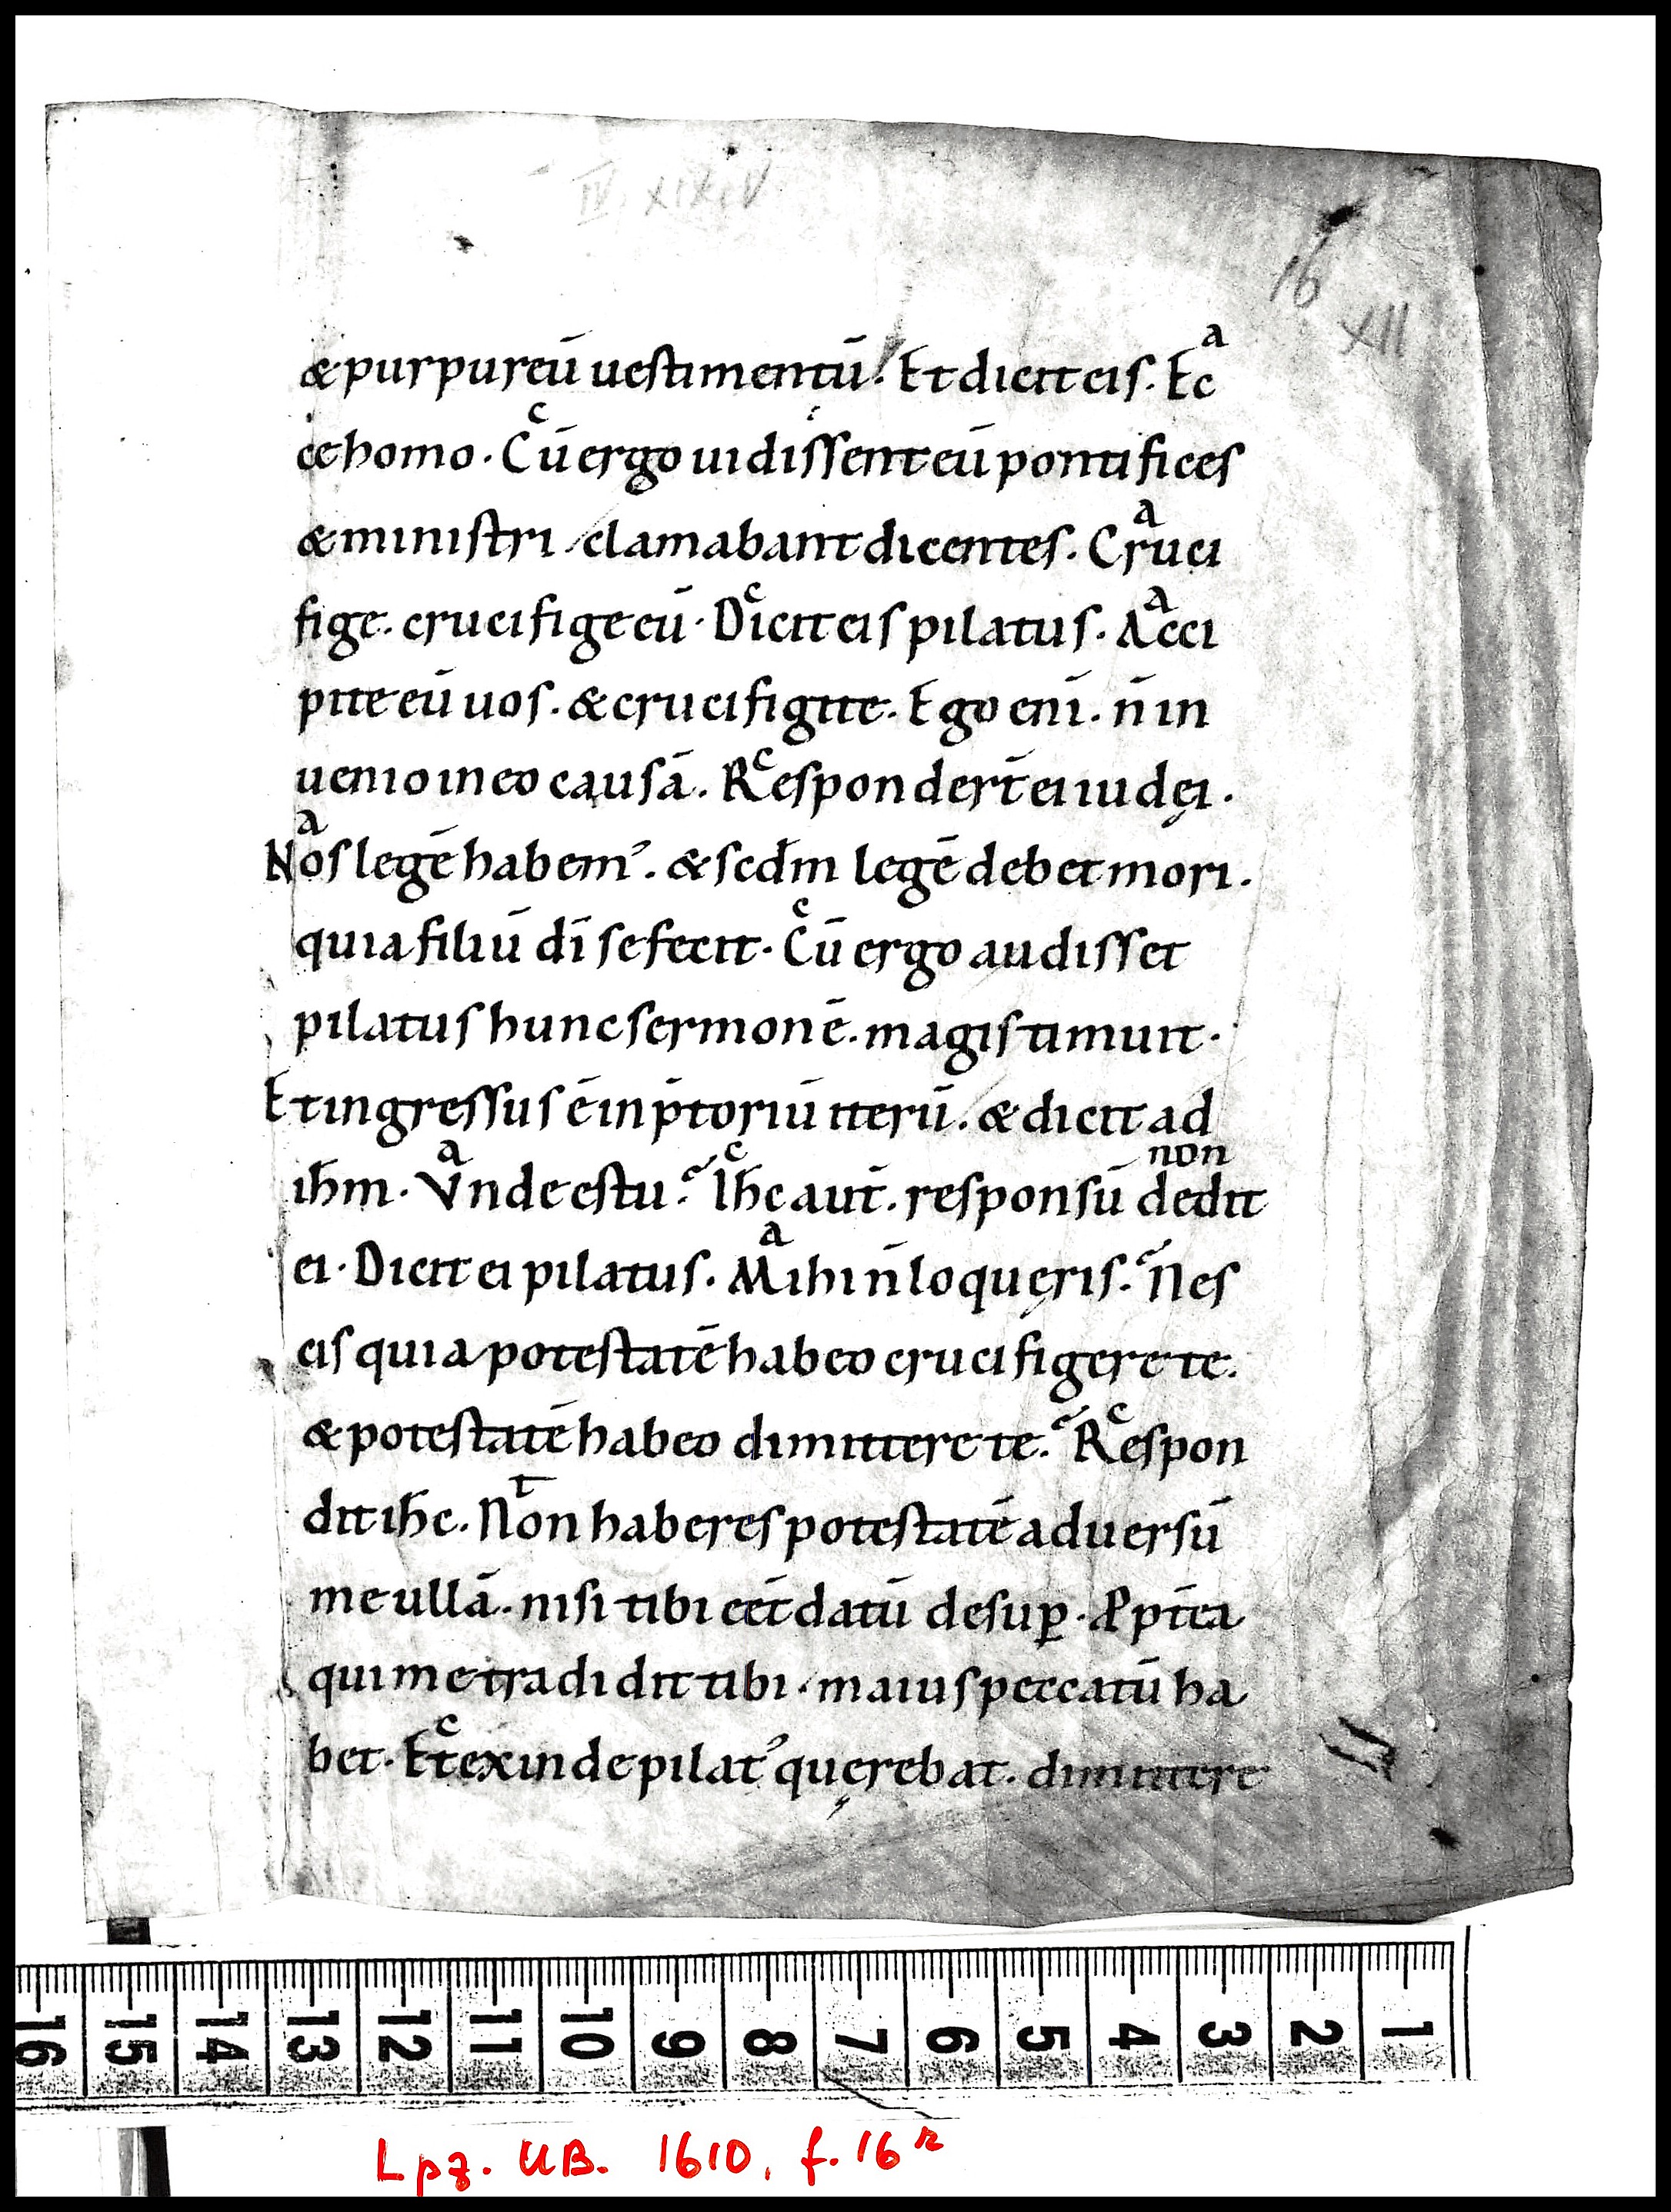 IV, XIX, V
16
XII
& purpureū uestimentū. Et dicit eis. Ec
a
ce homo. Cū ergo uidissent eū pontifices
c
& ministri clamabant dicentes. Cruci
a
fige. crucifige eū. Dicit eis pilatus. Acci
c a
pite eū uos. & crucifigite. Ego eni̅. n̅ in
uenio in eo causā. Responder̅t ei iudęi.
c
Nos legē habem᾿. & scd̅m legē debet mori.
a
quia filiū di̅ se fecit. Cū ergo audisset
c
pilatus hunc sermonē. magis timuit.
Et ingressus ē in p̅toriū iterū. & dicit ad
ih̅m. Vnde es tu? Ih̅c aut̅. responsū non dedit
a c
ei. Dicit ei pilatus. Mihi n̅ loquęris? Nes
a
cis quia potestatē habeo crucifigere te.
& potestatē habeo dimittere te? Respon
c
dit ih̅c. Non haberes potestatē aduersū
t
me ullā. nisi tibi eet̅ datū desuꝑ. Ꝓpt̅ea
qui me tradidit tibi. maius peccatū ha
bet. Et exinde pilat᾿ quęrebat. dimittere
c
16 15 14 13 12 11 10 9 8 7 6 5 4 3 2 1
Lpz. UB. 1610, f. 16r